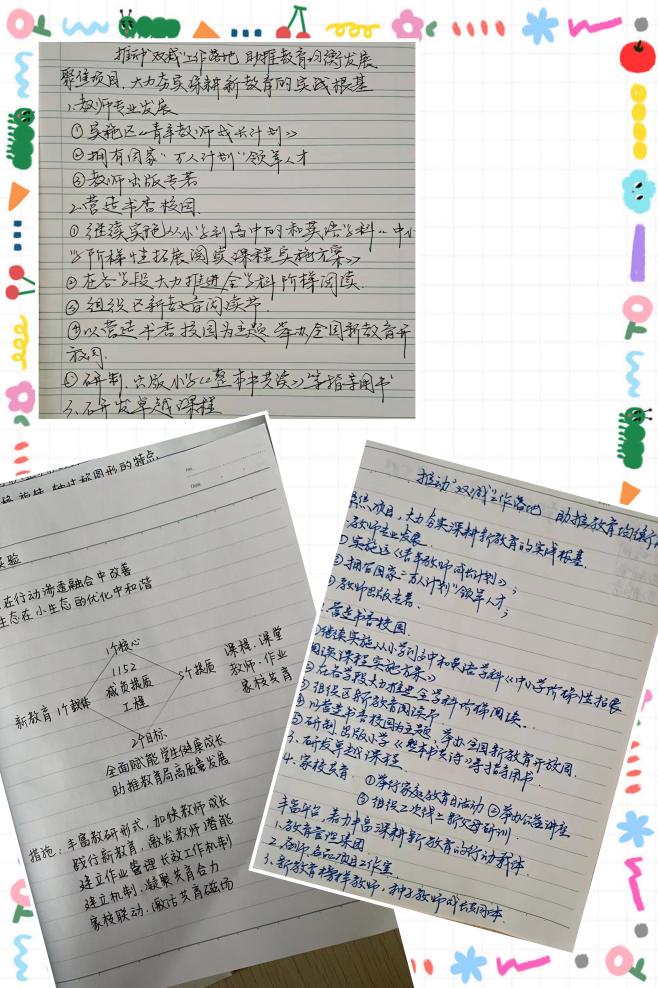 推动“双减”工作落地 助推教育均衡发展
聚焦项目,大力夯实深耕新教育的实践根基
1.教师专业发展
①实施区《青年教师成长计划》
②拥有国家“万人计划”领军人才
③教师出版专著
2.营造书香校园.
①继续实施从小学到高中的和英语学科《中小
学阶梯性拓展阅读课程实施方案》
②在各学段大力推进全学科阶梯阅读.
③组织区新教育阅读节.
④以营造书香校园为主题,举办全国新教育开
放周.
⑤研制、出版小学《整本书共读》等指导用书
3.研发卓越课程
图形的特点
No.
Date
验
在行动渗透融合中改善
生态在小生态的优化中和谐
1个核心
1152
减负提质
工程
新教育1个载体
5个提质
课程.课堂
教师.作业
家校共育
2个目标
全面赋能学生健康成长
助推教育局高质量发展
措施:丰富教研形式,加快教师成长
践行新教育,激发教师潜能
建立作业管理长效工作机制
建立机制,凝聚共育合力
家校联动,激活共育磁场
推动“双减”工作落地 助推教育均衡
焦项目,大力夯实深耕新教育的实践根基.
教师专业发展
实施区《青年教师成长计划》;
拥有国家“万人计划”领军人才;
教师出版专著.
营造书香校园.
继续实施从小学到高中和英语学科《中小学阶梯性拓展
阅读课程实施方案》
②在各学段大力推进全学科阶梯阅读...
③组织区新教育阅读节
④以营造书香校园为主题,举办全国新教育开放周.
⑤研制、出版小学《整本书共读》等指导用书.
3.研发卓越课程
4.家校共育. ①举行家庭教育日活动 ②举办公益讲座
③组织二次线上新父母研训.
丰富平台,着力丰富深耕新教育的行动载体.
1.教育管理集团
2.名师名品项目工作室.
3.新教育榜样教师,种子教师成长团体.